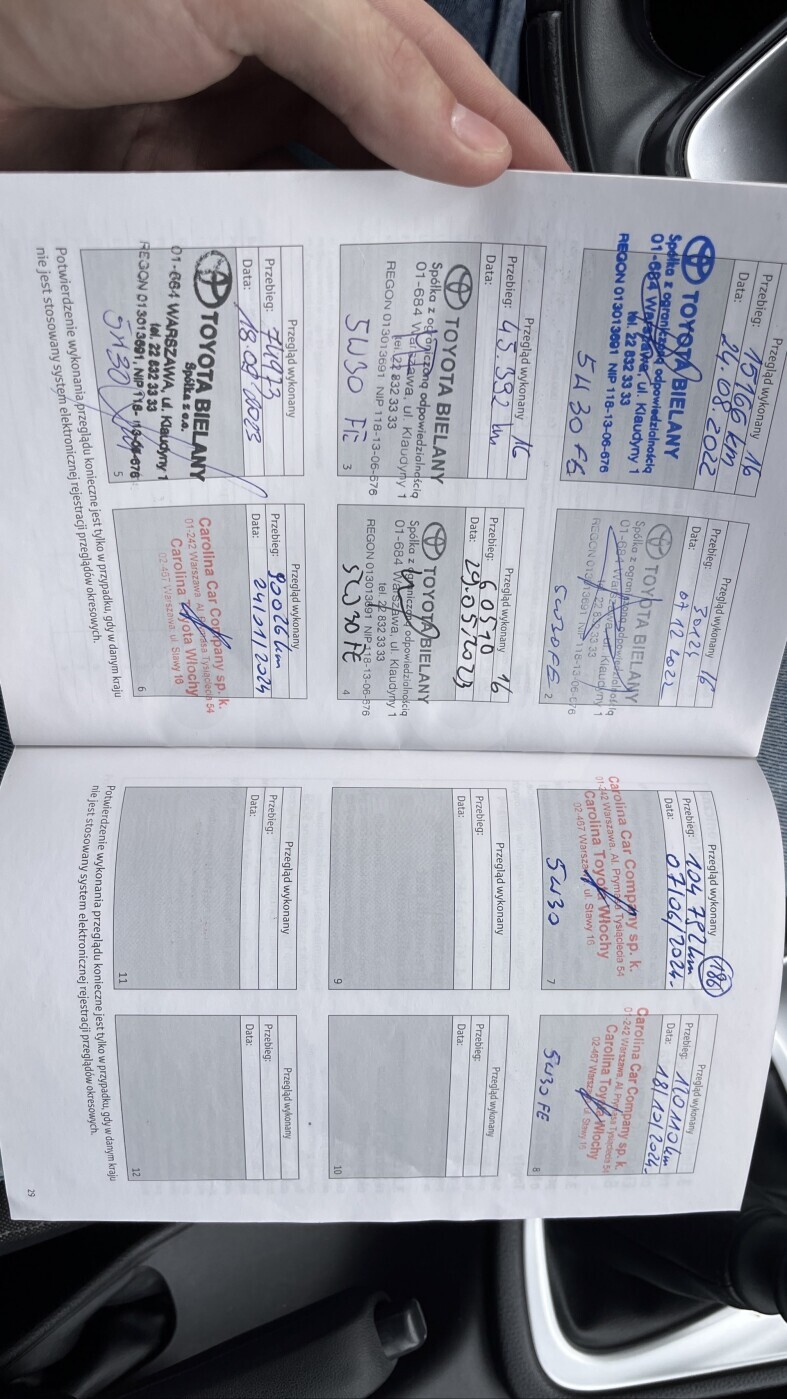 Przegląd wykonany
Przebieg: 15166 km 16
Data: 24.08.2022
TOYOTA BIELANY
Spółka z ograniczoną odpowiedzialnością
01-684 Warszawa, ul. Klaudyny 1
tel. 22 832 33 33
REGON 013013691 NIP 118-13-06-676
5W30 FE
1
Przegląd wykonany
Przebieg: 30124 16
Data: 07 12 2022
TOYOTA BIELANY
Spółka z ograniczoną odpowiedzialnością
01-684 Warszawa, ul. Klaudyny 1
tel. 22 832 33 33
REGON 013013691 NIP 118-13-06-676
5W30 FE
2
Przegląd wykonany
Przebieg: 45.392 km 16
Data:
TOYOTA BIELANY
Spółka z ograniczoną odpowiedzialnością
01-684 Warszawa, ul. Klaudyny 1
tel. 22 832 33 33
REGON 013013691 NIP 118-13-06-676
5W30 FE
3
Przegląd wykonany
Przebieg: 60510 16
Data: 29.05.2023
TOYOTA BIELANY
Spółka z ograniczoną odpowiedzialnością
01-684 Warszawa, ul. Klaudyny 1
tel. 22 832 33 33
REGON 013013691 NIP 118-13-06-676
5W30 FE
4
Przegląd wykonany
Przebieg: 74973
Data: 18.09.2023
TOYOTA BIELANY
Spółka z o.o.
01-684 WARSZAWA, ul. Klaudyny 1
tel. 22 832 33 33
REGON 013013691, NIP 118-13-06-676
5W30
5
Przegląd wykonany
Przebieg: 90026 km
Data: 24/01/2024
Carolina Car Company sp. k.
01-242 Warszawa, Al. Prymasa Tysiąclecia 54
Carolina Toyota Włochy
02-467 Warszawa, ul. Sławy 16
6
Potwierdzenie wykonania przeglądu konieczne jest tylko w przypadku, gdy w danym kraju
nie jest stosowany system elektronicznej rejestracji przeglądów okresowych.
Przegląd wykonany 186
Przebieg: 104 782 km
Data: 07/06/2024
Carolina Car Company sp. k.
01-242 Warszawa, Al. Prymasa Tysiąclecia 54
Carolina Toyota Włochy
02-467 Warszawa, ul. Sławy 16
5W30
7
Przegląd wykonany
Przebieg: 110110 km
Data: 18/10/2024
Carolina Car Company sp. k.
01-242 Warszawa, Al. Prymasa Tysiąclecia 54
Carolina Toyota Włochy
02-467 Warszawa, ul. Sławy 16
5W30 FE
8
Przegląd wykonany
Przebieg:
Data:
9
Przegląd wykonany
Przebieg:
Data:
10
Przegląd wykonany
Przebieg:
Data:
11
Przegląd wykonany
Przebieg:
Data:
12
Potwierdzenie wykonania przeglądu konieczne jest tylko w przypadku, gdy w danym kraju
nie jest stosowany system elektronicznej rejestracji przeglądów okresowych.
29